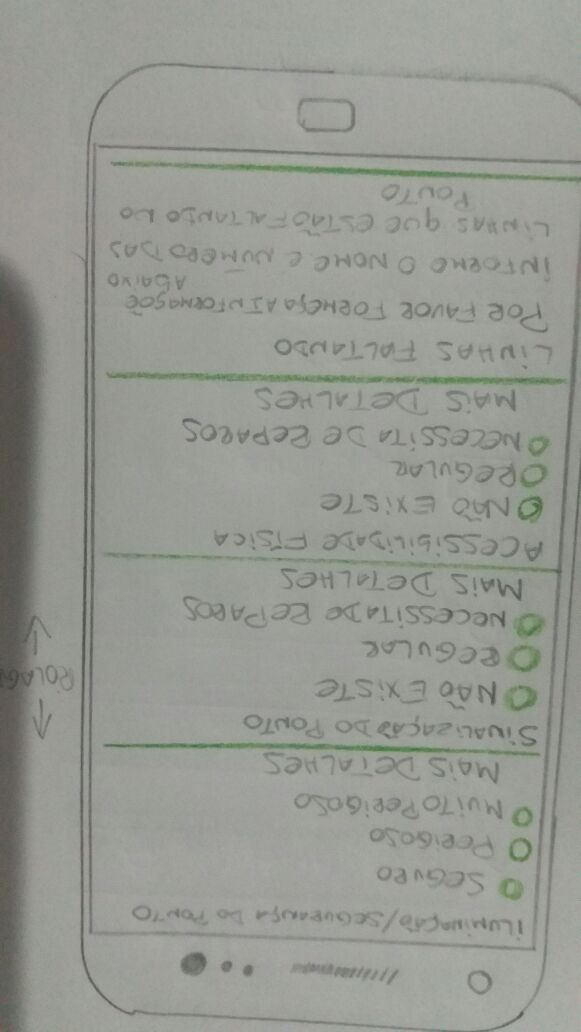 ILUMINAÇÃO/SEGURANÇA DO PONTO
SEGURO
PERIGOSO
MUITO PERIGOSO
MAIS DETALHES
SINALIZAÇÃO DO PONTO
NÃO EXISTE
REGULAR
NECESSITA DE REPAROS
MAIS DETALHES
ACESSIBILIDADE FÍSICA
NÃO EXISTE
REGULAR
NECESSITA DE REPAROS
MAIS DETALHES
LINHAS FALTANDO
POR FAVOR FORNEÇA A INFORMAÇÕE
ABAIXO
INFORME O NOME E NÚMERO DAS
LINHAS QUE ESTÃO FALTANDO NO
PONTO
ROLAG